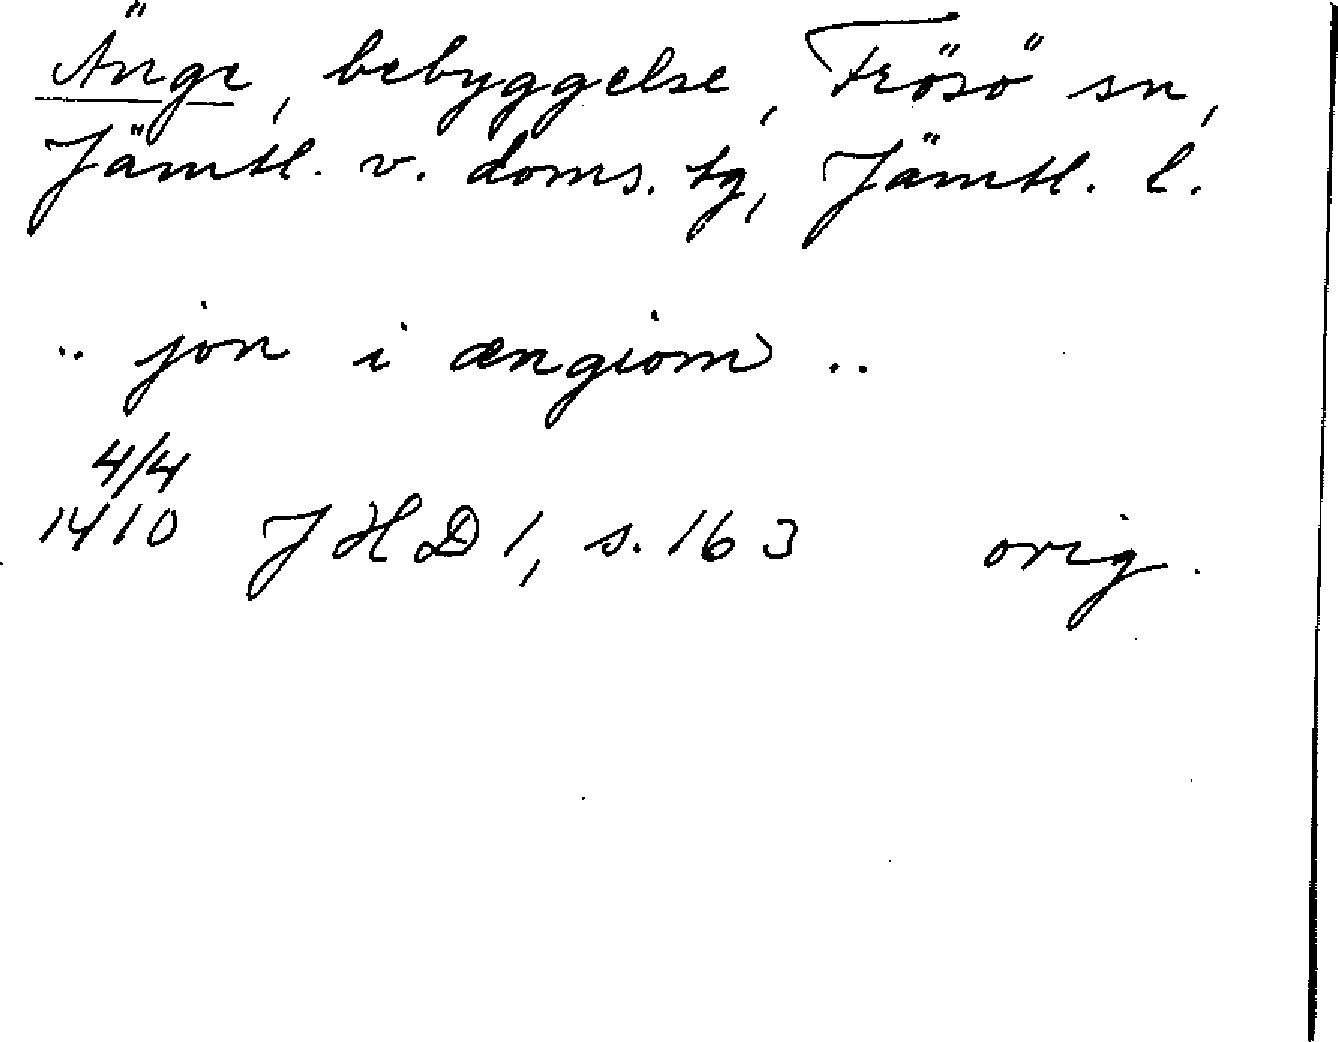 Änge, bebyggelse, Frösö sn,
Jämtl. v. doms. tg, Jämtl. l.
.. jon i ængiom ..
4/4
1410 JHD 1, s. 163 orig.